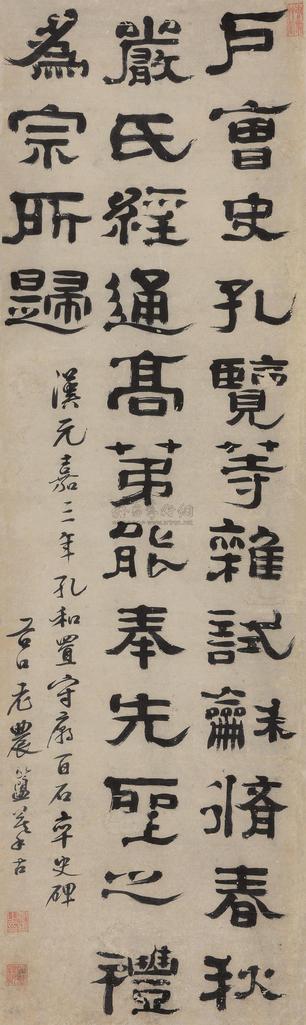 戶曹史孔覽等雜試龢脩春秋
嚴氏經通高第能奉先聖之禮
為宗所歸
漢元嘉三年孔和置守廟百石卒史碑
谷口老農簠